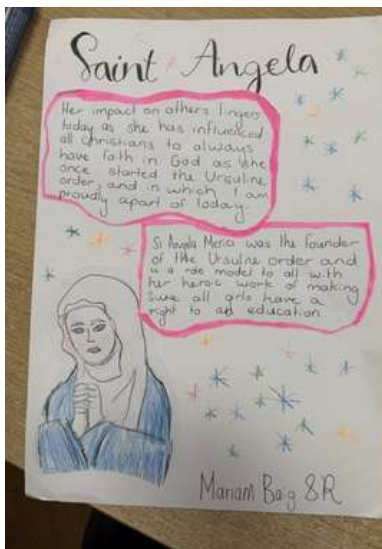 Saint Angela
Her impact on others lingers
today as she has influenced
all christians to always
have faith in God as she
once started the Ursuline
order, and in which I am
proudly apart of today.
St Angela Merici was the founder
of the Ursuline order and
is a role model to all with
her heroic work of making
sure all girls have a
right to an education
Mariam Baig 8R